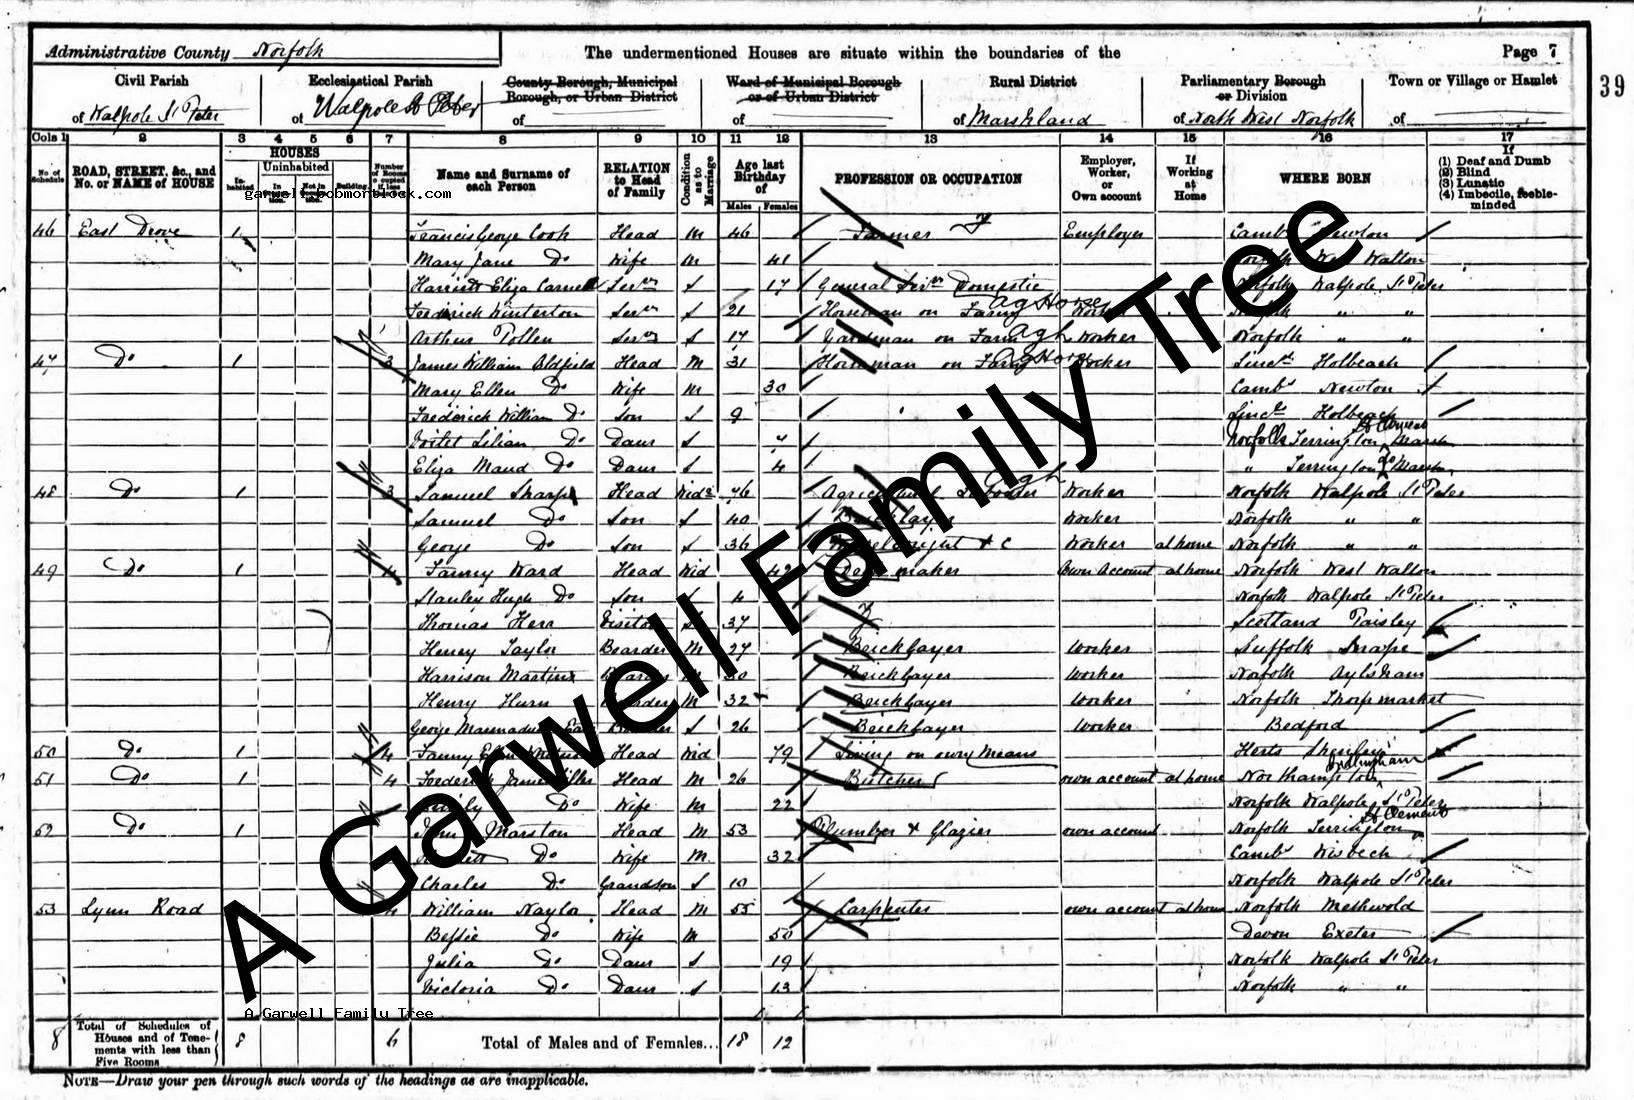 Administrative County Norfolk
The undermentioned Houses are situate within the boundaries of the
Page 7
39
Civil Parish
of Walpole St Peter
Ecclesiastical Parish
of Walpole St Peter
County Borough, Municipal Borough, or Urban District
of
Ward of Municipal Borough or of Urban District
of
Rural District
of Marshland
Parliamentary Borough or Division
of North West Norfolk
Town or Village or Hamlet
of
Cols 1 2 3 4 5 6 7 8 9 10 11 12 13 14 15 16 17
No. of Schedule
ROAD, STREET, &c., and No. or NAME of HOUSE
HOUSES
Inhabited
Uninhabited
Building
garwell@robmortlock.com
Name and Surname of each Person
RELATION to Head of Family
Condition as to Marriage
Age last Birthday of
Males Females
PROFESSION OR OCCUPATION
Employer, Worker, or Own account
If Working at Home
WHERE BORN
If
(1) Deaf and Dumb
(2) Blind
(3) Lunatic
(4) Imbecile, feeble-minded
46 East Drove 1 Francis George Cook Head M 46 Farmer Employer Camb Newton
Mary Jane Do Wife M 41 Norfolk West Walton
Harriett Eliza Servt S 17 General Servt Domestic Norfolk Walpole St Peter
Frederick Winterton Servt S 21 Horseman on Farm Ag Horse Worker Norfolk " "
Arthur Pollen Servt S 17 on Farm Worker Norfolk " "
47 Do 1 3 James William Oldfield Head M 31 Horseman on Farm Worker Linc Holbeach
Mary Ellen Do Wife M 30 Cambs Newton
Frederick William Do Son S 9 Linc Holbeach
Violet Lilian Do Daur S 7 Norfolk Terrington St Clement
Eliza Maud Do Daur S 4 " Terrington do
48 Do 1 3 Samuel Sharpe Head Widr 76 Agricultural Labourer Worker Norfolk Walpole St Peter
Samuel Do Son S 40 Bricklayer Worker Norfolk " "
George Do Son S 36 Wheelwright & C Worker at home Norfolk " "
49 Do 1 4 Fanny Ward Head Wid 42 Dressmaker Own Account at home Norfolk West Walton
Stanley Hugh Do Son S 4 Norfolk Walpole St Peter
Thomas Kerr Visitor 37 Scotland Paisley
Henry Taylor Boarder M 27 Bricklayer Worker Suffolk Snape
Harrison Martins Boarder Bricklayer Worker Norfolk Aylsham
Henry Hurn Boarder M 32 Bricklayer Worker Norfolk Thorpmarket
George Marmaduke Boarder S 26 Bricklayer Worker Bedford
50 Do 1 4 Fanny Head Wid 79 Living on own Means Herts Shenley
51 Do 1 4 Frederick James Head M 26 Butcher own account at home Northampton
Do Wife M 22 Norfolk Walpole St Peter
52 Do 1 John Marston Head M 53 Plumber & Glazier own account Norfolk Terrington St Clement
Do Wife M 32 Cambs Wisbech
Charles Do Grandson S 10 Norfolk Walpole St Peter
53 Lynn Road 4 William Naylor Head M 55 Carpenter own account at home Norfolk Methwold
Bessie Do Wife M 50 Devon Exeter
Julia Do Daur S 19 Norfolk Walpole St Peter
Victoria Do Daur S 13 Norfolk " "
A Garwell Family Tree
A Garwell Family Tree
8 Total of Schedules of Houses and of Tenements with less than Five Rooms 8 6 Total of Males and of Females... 18 12
NOTE—Draw your pen through such words of the headings as are inapplicable.